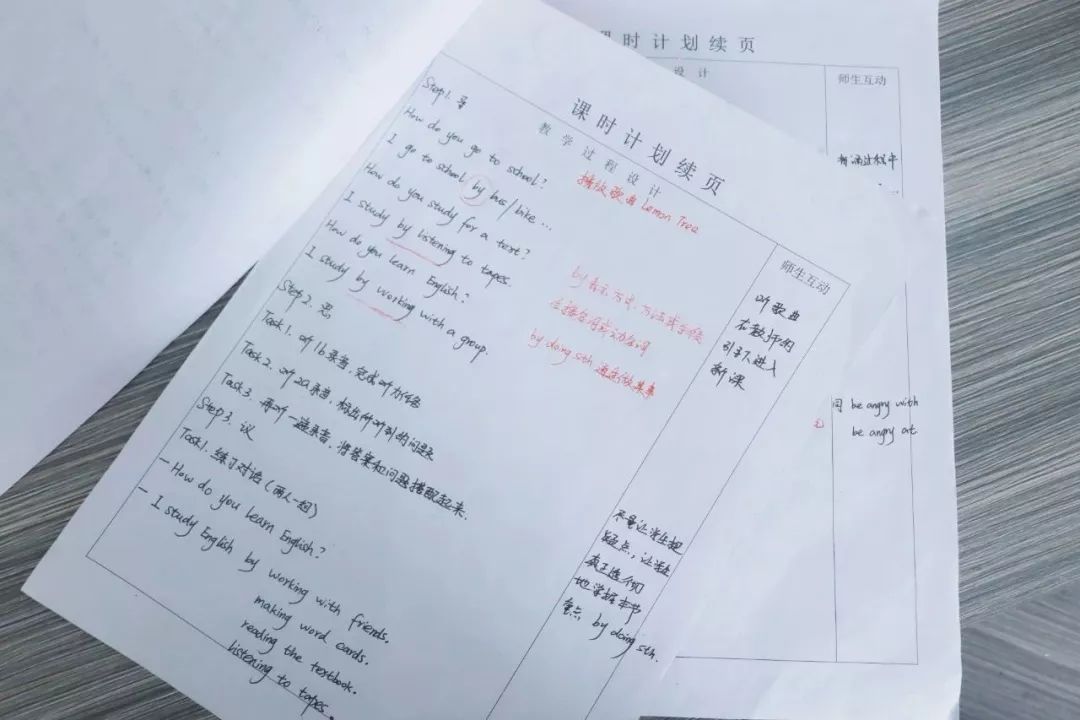 课时计划续页
教学过程设计
师生互动
Step 1. 导
播放歌曲 Lemon Tree
How do you go to school?
I go to school by bus/bike...
How do you study for a test?
I study by listening to tapes.
How do you learn English?
I study by working with a group.
by 表示方式、方法或手段
后接名词或动名词
by doing sth 通过做某事
听歌曲
在教师的
引导下进入
新课
Step 2. 思
Task 1. 听1b录音,完成听力任务
Task 2. 听2a录音,标出所听到的问题
Task 3. 再听一遍录音,将答案和问题搭配起来.
Step 3. 议
Task 1. 练习对话(两人一组)
- How do you learn English?
- I study English by working with friends.
making word cards.
reading the textbook.
listening to tapes.
尽量让学生把
疑点,让学生
真正
地掌握本节
重点 by doing sth.
课时计划续页
设计
师生互动
be angry with
be angry at